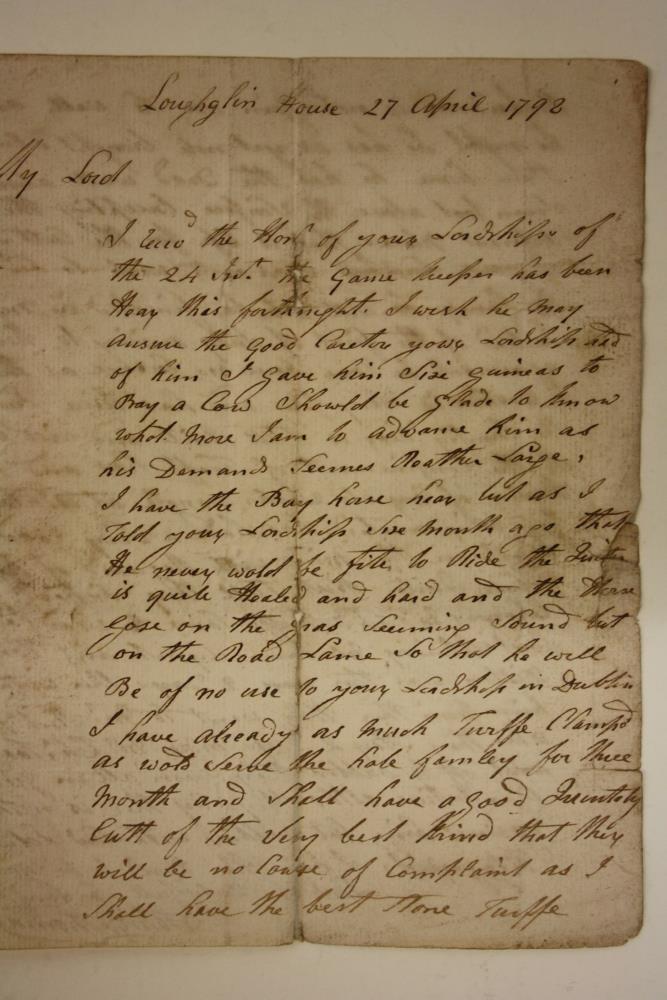 Loughglin House 27 April 1792
My Lord
I recvd the Honr of your Lordships of
the 24 Inst. the Game keeper has been
Hear this fortnight. I wish he may
ansure the good Caretor your Lordship
of him I gave him Sixe guineas to
Bay a Cow Showld be glade to know
what More I am to advance him as
his Demands Seemes Roather Large,
I have the Bay horse hear but as I
Told your Lordship Sixe Month ago that
He never wold be fitt to Ride the
is quite Healed and hard and the Horse
Gose on the gras Seeming Sound but
on the Road Lame So that he will
Be of no use to your Lordship in Dublin
I have already as much Turffe Clampd
as wold Serve the hole famley for three
Month and Shall have a good Quintity
Cutt of the Very best Kind that they
will be no Cause of Complaint as I
Shall have the best Stone Turffe